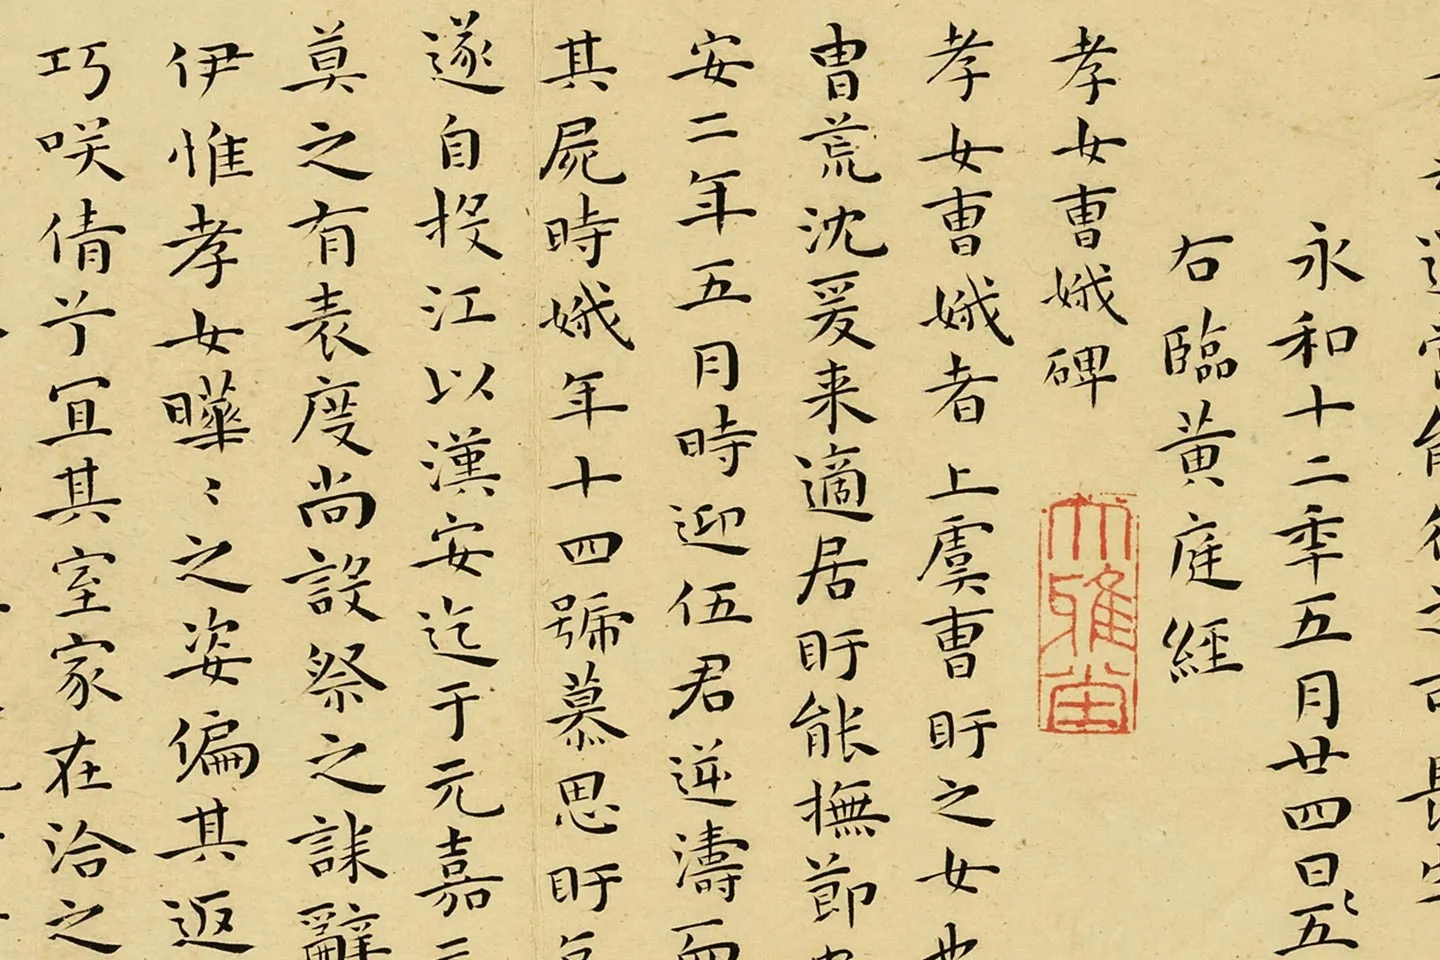 永和十二秊五月廿四日五
右臨黃庭經
孝女曹娥碑
大雅
孝女曹娥者上虞曹盱之女也
胄荒沈爰来適居盱能撫節
安二年五月時迎伍君逆濤而
其屍時娥年十四號慕思盱
遂自投江以漢安迄于元嘉元
莫之有表度尚設祭之誄辭
伊惟孝女曄〻之姿偏其返
巧咲倩兮宜其室家在洽之